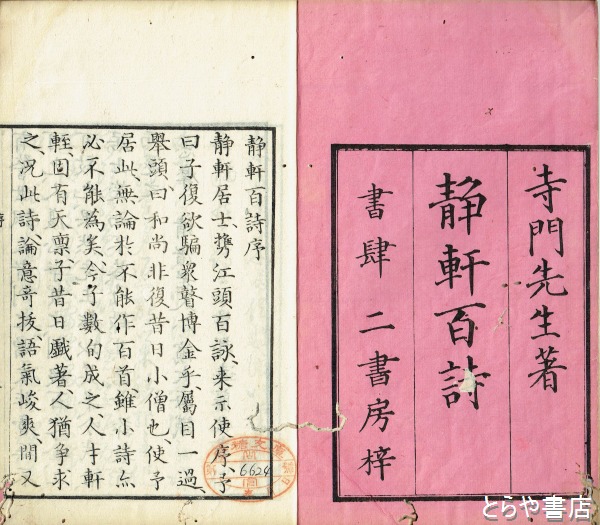 寺門先生著
静軒百詩
書肆 二書房梓
静軒百詩序
静軒居士携江頭百詠来示使序、予
曰子復欲騙衆瞽博金乎、属目一過、
挙頭曰和尚非復昔日小僧也、使予
居此、無論於不能作百首雖小詩亦
必不能為矣、今子数旬成之、人才軒
輊、固有天禀、子昔日戯著、人猶争求
之、况此詩、論意奇抜、語気峻爽、間又
序
6624
とらや書店